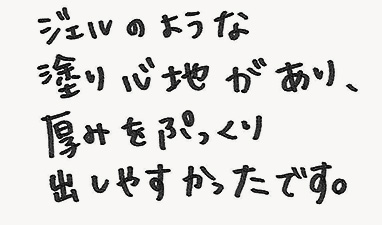 ジェルのような
塗り心地があり、
厚みをぷっくり
出しやすかったです。